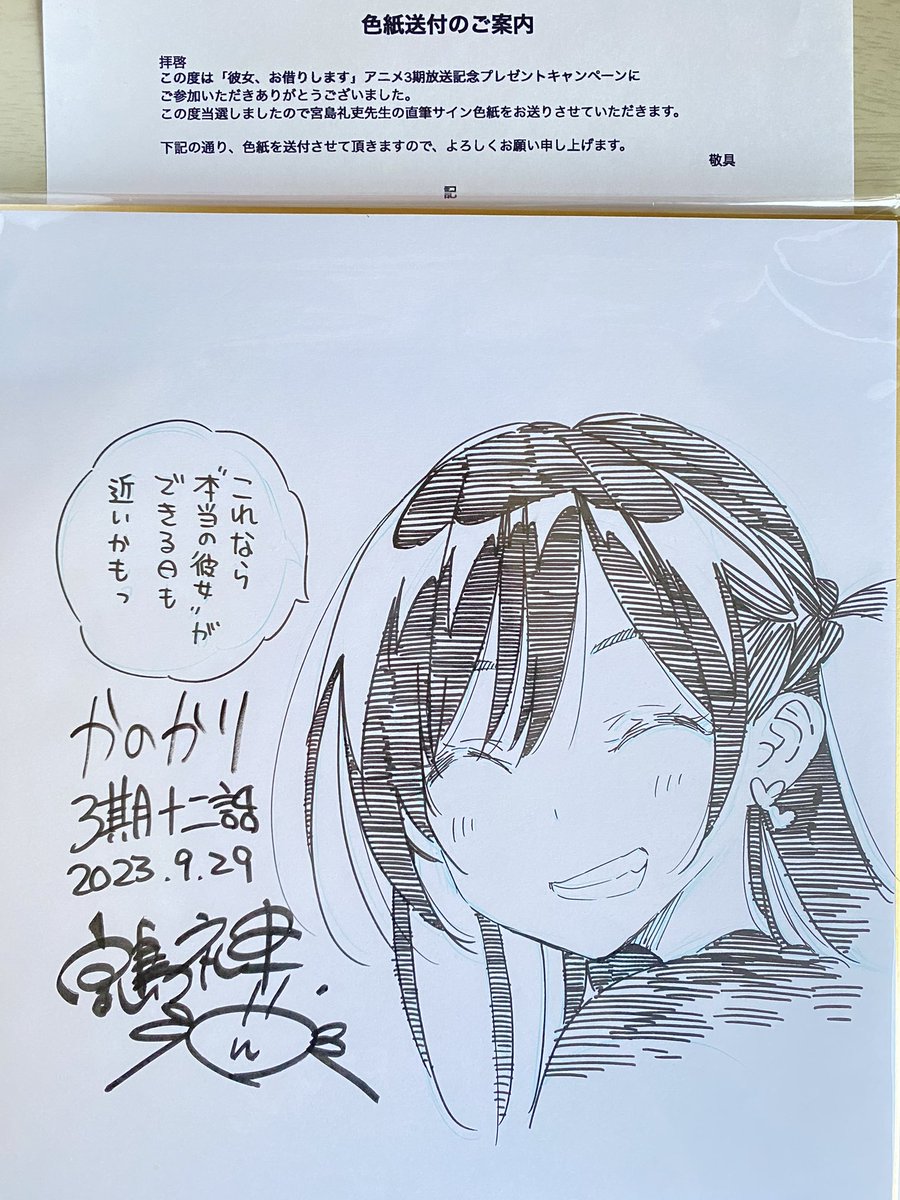 色紙送付のご案内
拝啓
この度は「彼女、お借りします」アニメ3期放送記念プレゼントキャンペーンに
ご参加いただきありがとうございました。
この度当選しましたので宮島礼吏先生の直筆サイン色紙をお送りさせていただきます。
下記の通り、色紙を送付させて頂きますので、よろしくお願い申し上げます。
敬具
記
これなら
"本当の彼女"が
できる日も
近いかもっ
かのかり
3期十二話
2023.9.29
宮島礼吏